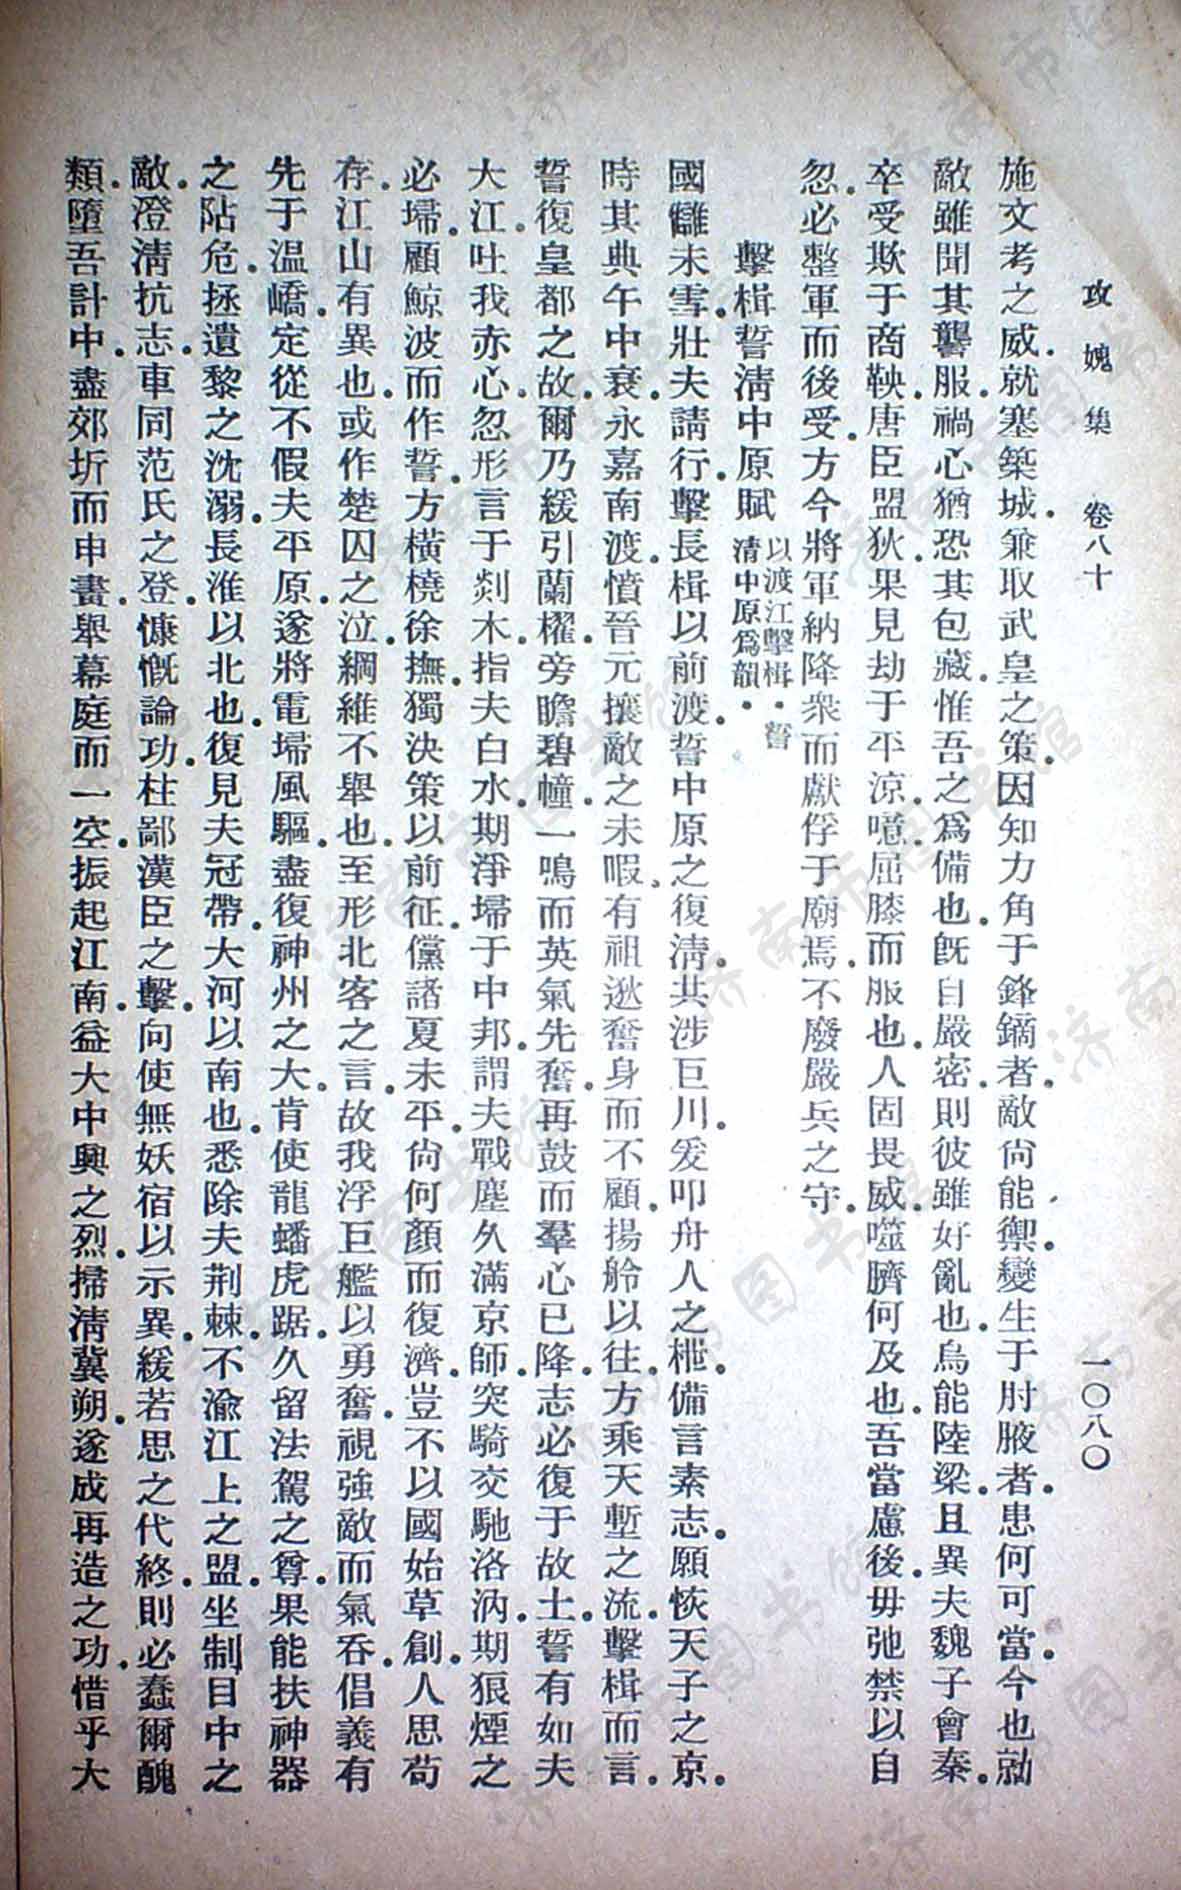 攻媿集 卷八十 一〇八〇
施文考之威.就塞築城.兼取武皇之策.因知力角于鋒鏑者.敵尙能禦.變生于肘腋者.患何可當.今也勍
敵雖聞其讋服.禍心猶恐其包藏.惟吾之爲備也.旣自嚴密.則彼雖好亂也.烏能陸梁.且異夫魏子會秦.
卒受欺于商鞅.唐臣盟狄.果見劫于平涼.噫.屈膝而服也.人固畏威.噬臍何及也.吾當慮後.毋弛禁以自
忽.必整軍而後受.方今將軍納降衆而獻俘于廟焉.不廢嚴兵之守.
擊楫誓淸中原賦 以渡江擊楫.誓
淸中原爲韻..
國讎未雪.壯夫請行.擊長楫以前渡.誓中原之復淸.共涉巨川.爰叩舟人之枻.備言素志.願恢天子之京.
時其典午中衰.永嘉南渡.憤晉元攘敵之未暇.有祖逖奮身而不顧.揚舲以往.方乘天塹之流.擊楫而言.
誓復皇都之故.爾乃緩引蘭櫂.旁瞻碧幢.一鳴而英氣先奮.再鼓而羣心已降.志必復于故土.誓有如夫
大江.吐我赤心.忽形言于剡木.指夫白水.期淨埽于中邦.謂夫戰塵久滿京師.突騎交馳洛汭.期狼煙之
必埽.顧鯨波而作誓.方橫橈徐撫.獨決策以前征.儻諸夏未平.尙何顏而復濟.豈不以國始草創.人思苟
存.江山有異也.或作楚囚之泣.綱維不舉也.至形北客之言.故我浮巨艦以勇奮.視強敵而氣呑.倡義有
先于溫嶠.定從不假夫平原.遂將電埽風驅.盡復神州之大.肯使龍蟠虎踞.久留法駕之尊.果能扶神器
之阽危.拯遺黎之沈溺.長淮以北也.復見夫冠帶.大河以南也.悉除夫荆棘.不渝江上之盟.坐制目中之
敵.澄淸抗志.車同范氏之登.慷慨論功.柱鄙漢臣之擊.向使無妖宿以示異.緩若思之代終.則必蠢爾醜
類.墮吾計中.盡郊圻而申畫.舉幕庭而一空.振起江南.益大中興之烈.掃淸冀朔.遂成再造之功.惜乎大